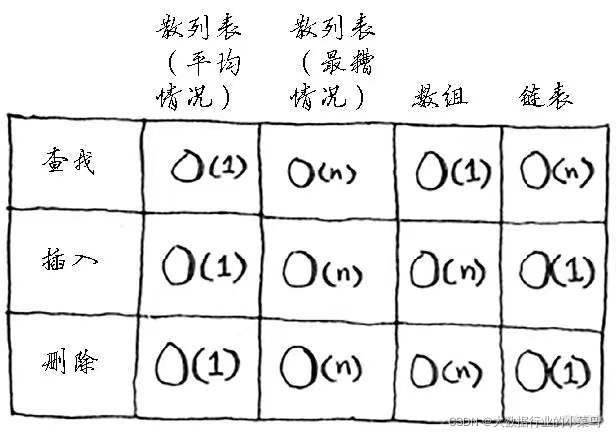 散列表 散列表
（平均 （最糟
情况） 情况） 数组 链表
查找 O(1) O(n) O(1) O(n)
插入 O(1) O(n) O(n) O(1)
删除 O(1) O(n) O(n) O(1)
CSDN @大数据行业的小菜哥